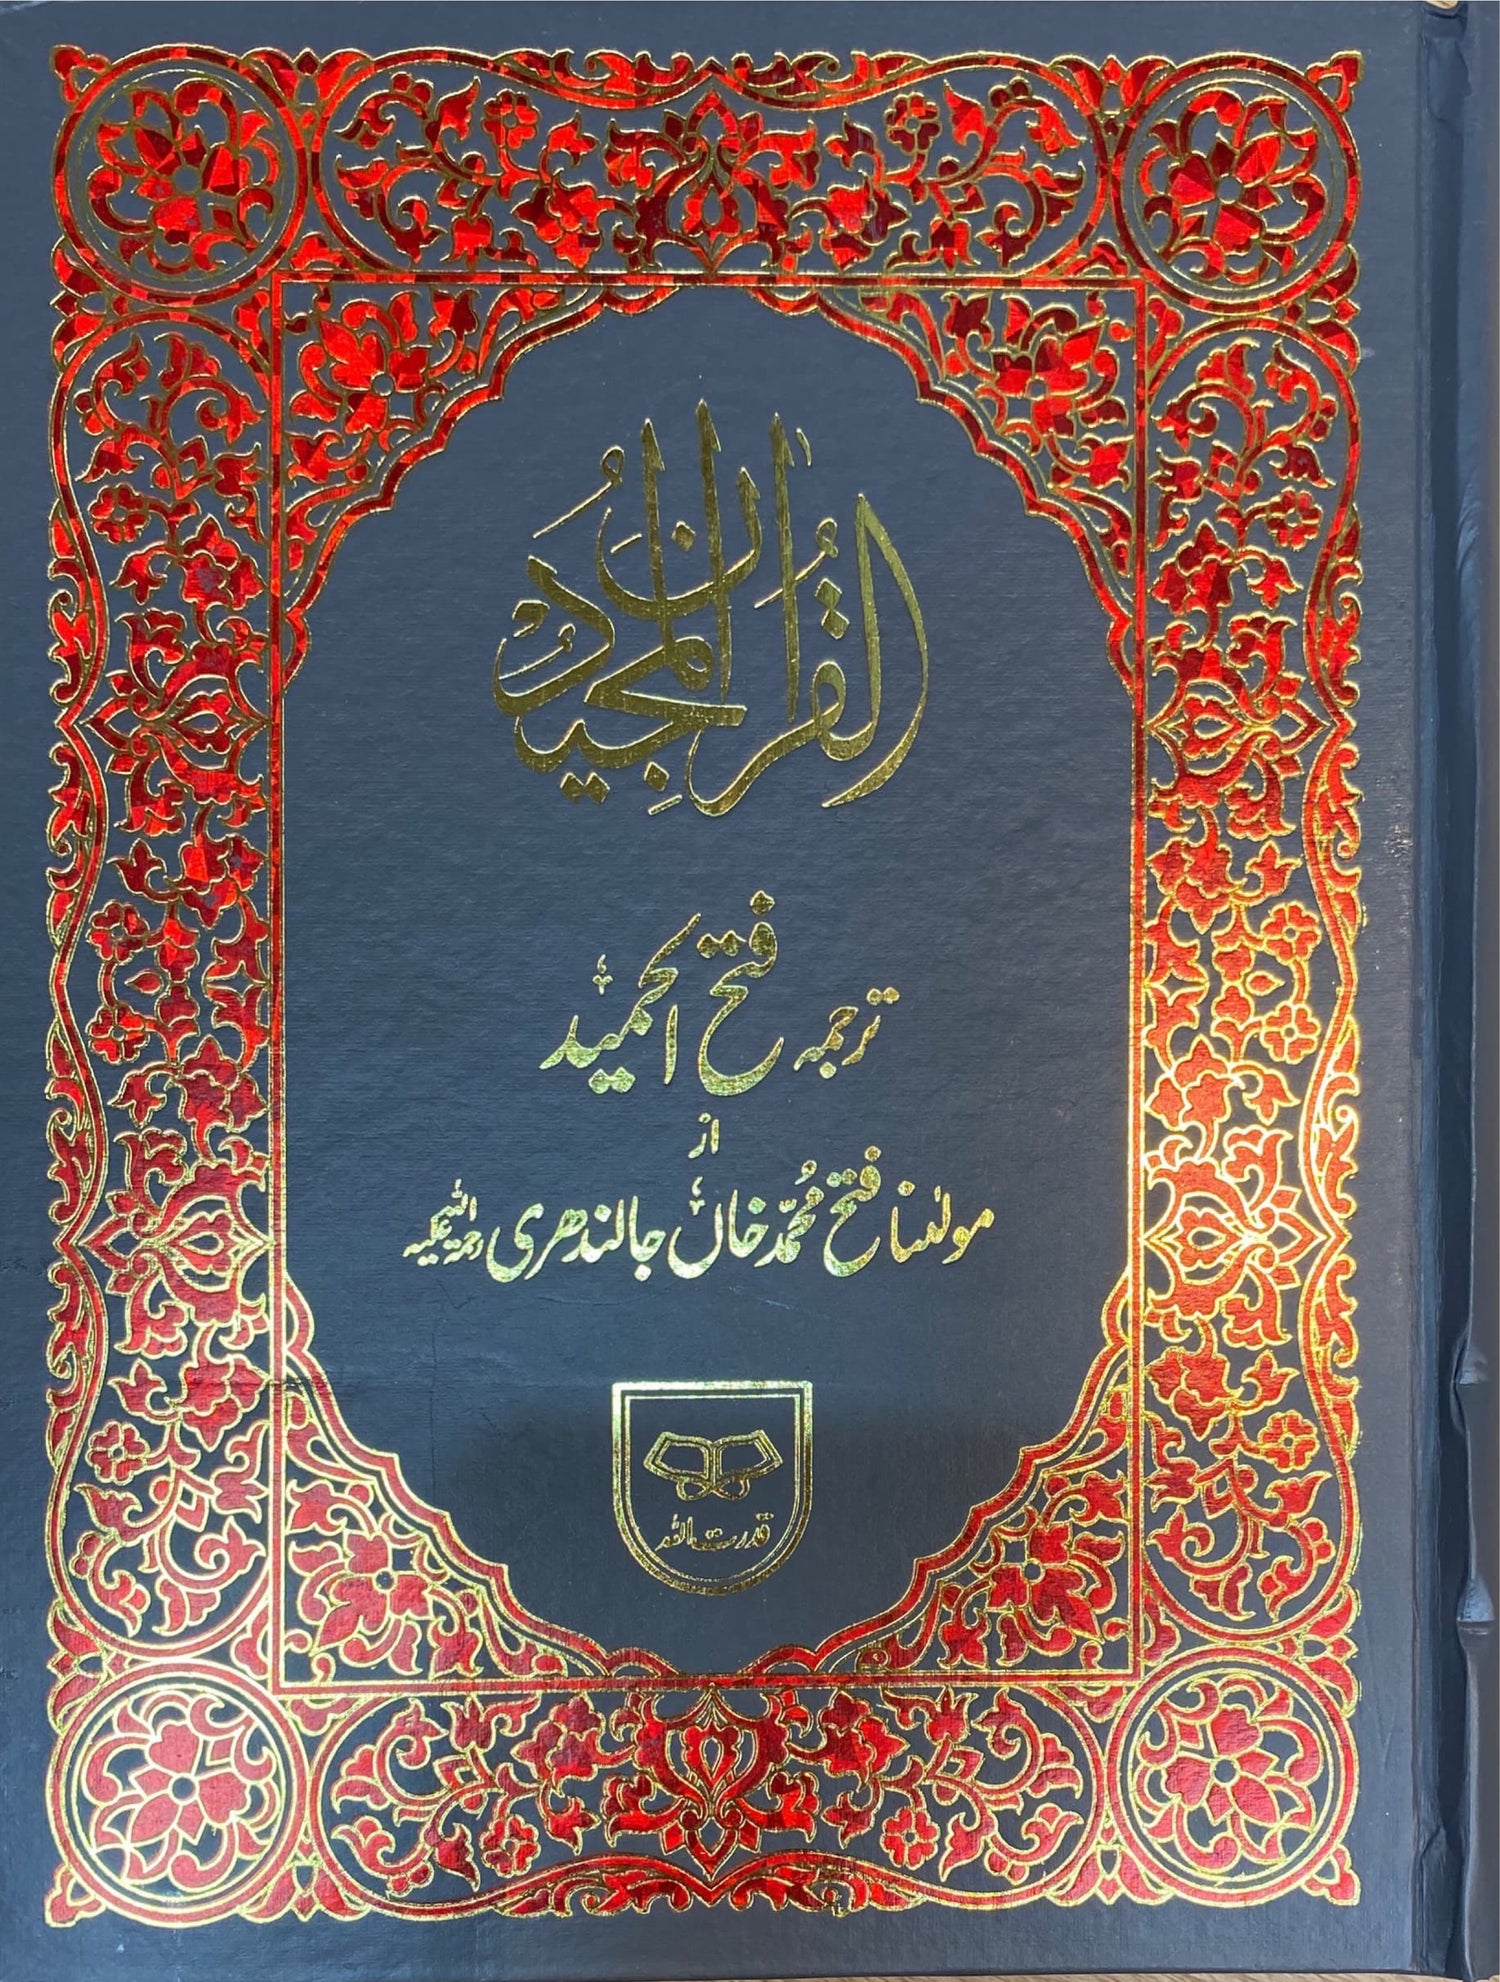 القُرآن المَجِيد
ترجمہ فتح الحمید
از
مولٰنا فتح محمّد خاں جالندھری رحمۃ اللہ علیہ
قدرت اللہ